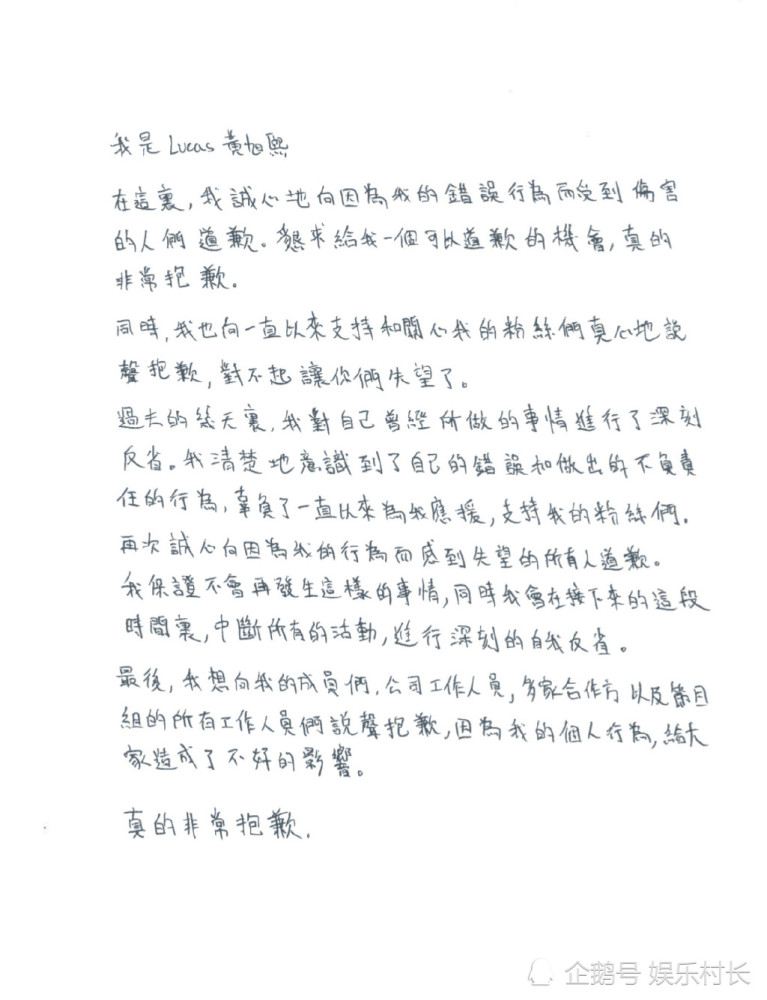 我是 Lucas 黃旭熙
在這裏，我誠心地向因為我的錯誤行為而受到傷害
的人們道歉。懇求給我一個可以道歉的機會，真的
非常抱歉。
同時，我也向一直以來支持和關心我的粉絲們真心地說
聲抱歉，對不起讓你們失望了。
過去的幾天裏，我對自己曾經所做的事情進行了深刻
反省。我清楚地意識到了自己的錯誤和做出的不負責
任的行為，辜負了一直以來為我應援，支持我的粉絲們.
再次誠心向因為我的行為而感到失望的所有人道歉。
我保證不會再發生這樣的事情，同時我會在接下來的這段
時間裏，中斷所有的活動，進行深刻的自我反省。
最後，我想向我的成員們，公司工作人員，多家合作方以及節目
組的所有工作人員們說聲抱歉，因為我的個人行為，給大
家造成了不好的影響。
真的非常抱歉.
企鹅号 娱乐村长